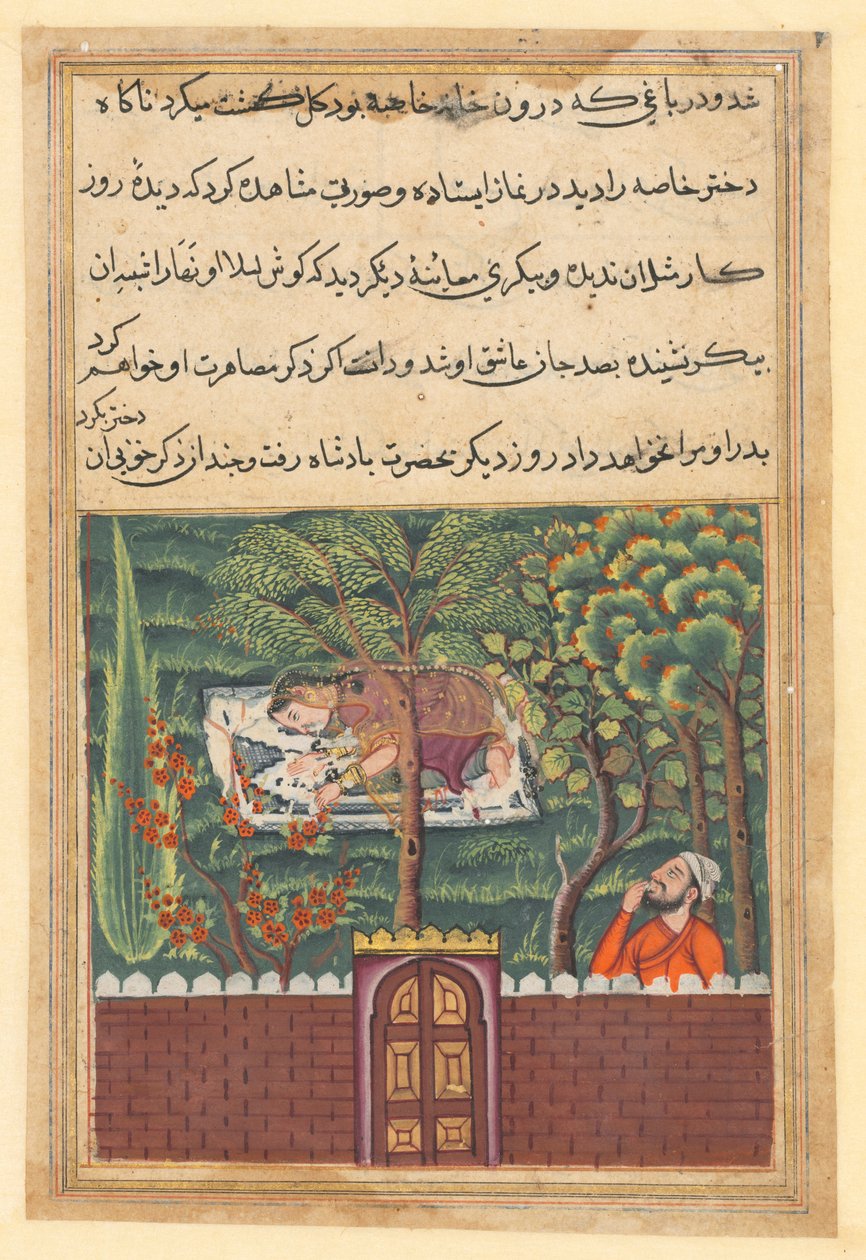 شد و در باغی که درون خانه خاصه بود کل کشت میکرد ناکاه
دختر خاصه را دید در نماز ایستاده و صورتی مشاهده کرد که دیدهٔ روز
کار مثل ان ندیده و بیکری معاینهٔ دیکر دید که کوش لیلا او نَهَارا شبه ان
بیکر نشینده بصد جان عاشق او شد و دانت اکر ذکر مصاهرت او خواهم کرد
بدر او مرا نخواهد داد روز دیکر بحضرت بادشاه رفت و جند از ذکر خوبی ان دختر بکرد